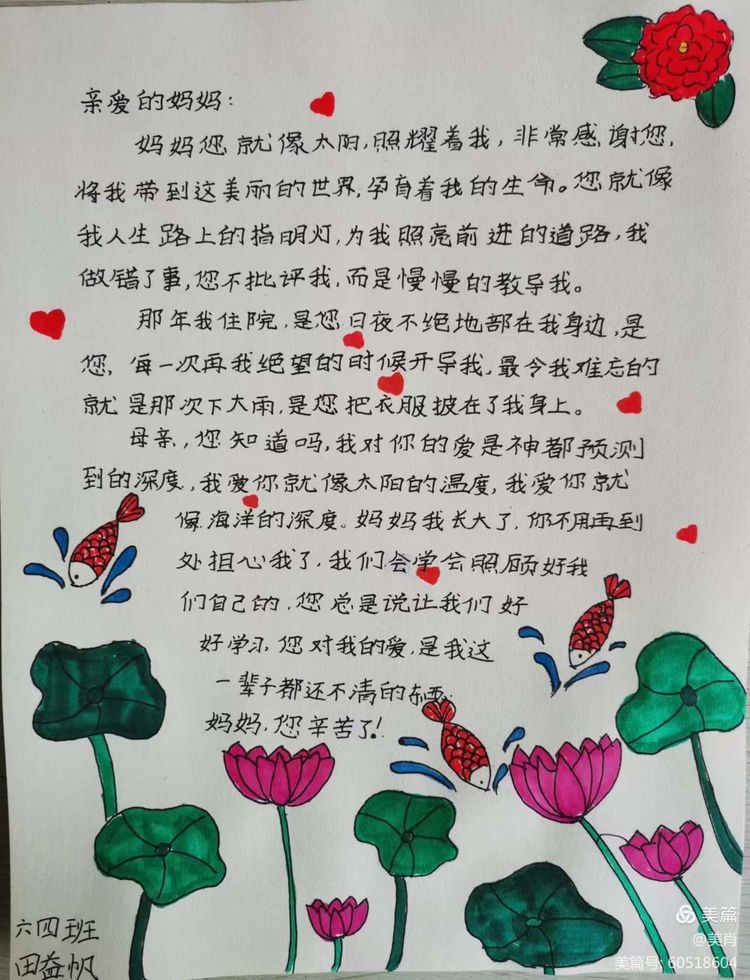 亲爱的妈妈：
妈妈您就像太阳，照耀着我，非常感谢您，
将我带到这美丽的世界，孕育着我的生命。您就像
我人生路上的指明灯，为我照亮前进的道路，我
做错了事，您不批评我，而是慢慢的教导我。
那年我住院，是您日夜不绝地部在我身边，是
您，每一次再我绝望的时候开导我，最令我难忘的
就是那次下大雨，是您把衣服披在了我身上。
母亲，您知道吗，我对你的爱是神都预测
到的深度，我爱你就像太阳的温度，我爱你就
像海洋的深度。妈妈我长大了，你不用再到
处担心我了，我们会学会照顾好我
们自己的，您总是说让我们好
好学习，您对我的爱，是我这
一辈子都还不清的东西.
妈妈，您辛苦了！
六四班
田益帆
美篇
@美肖
美篇号: 60518604